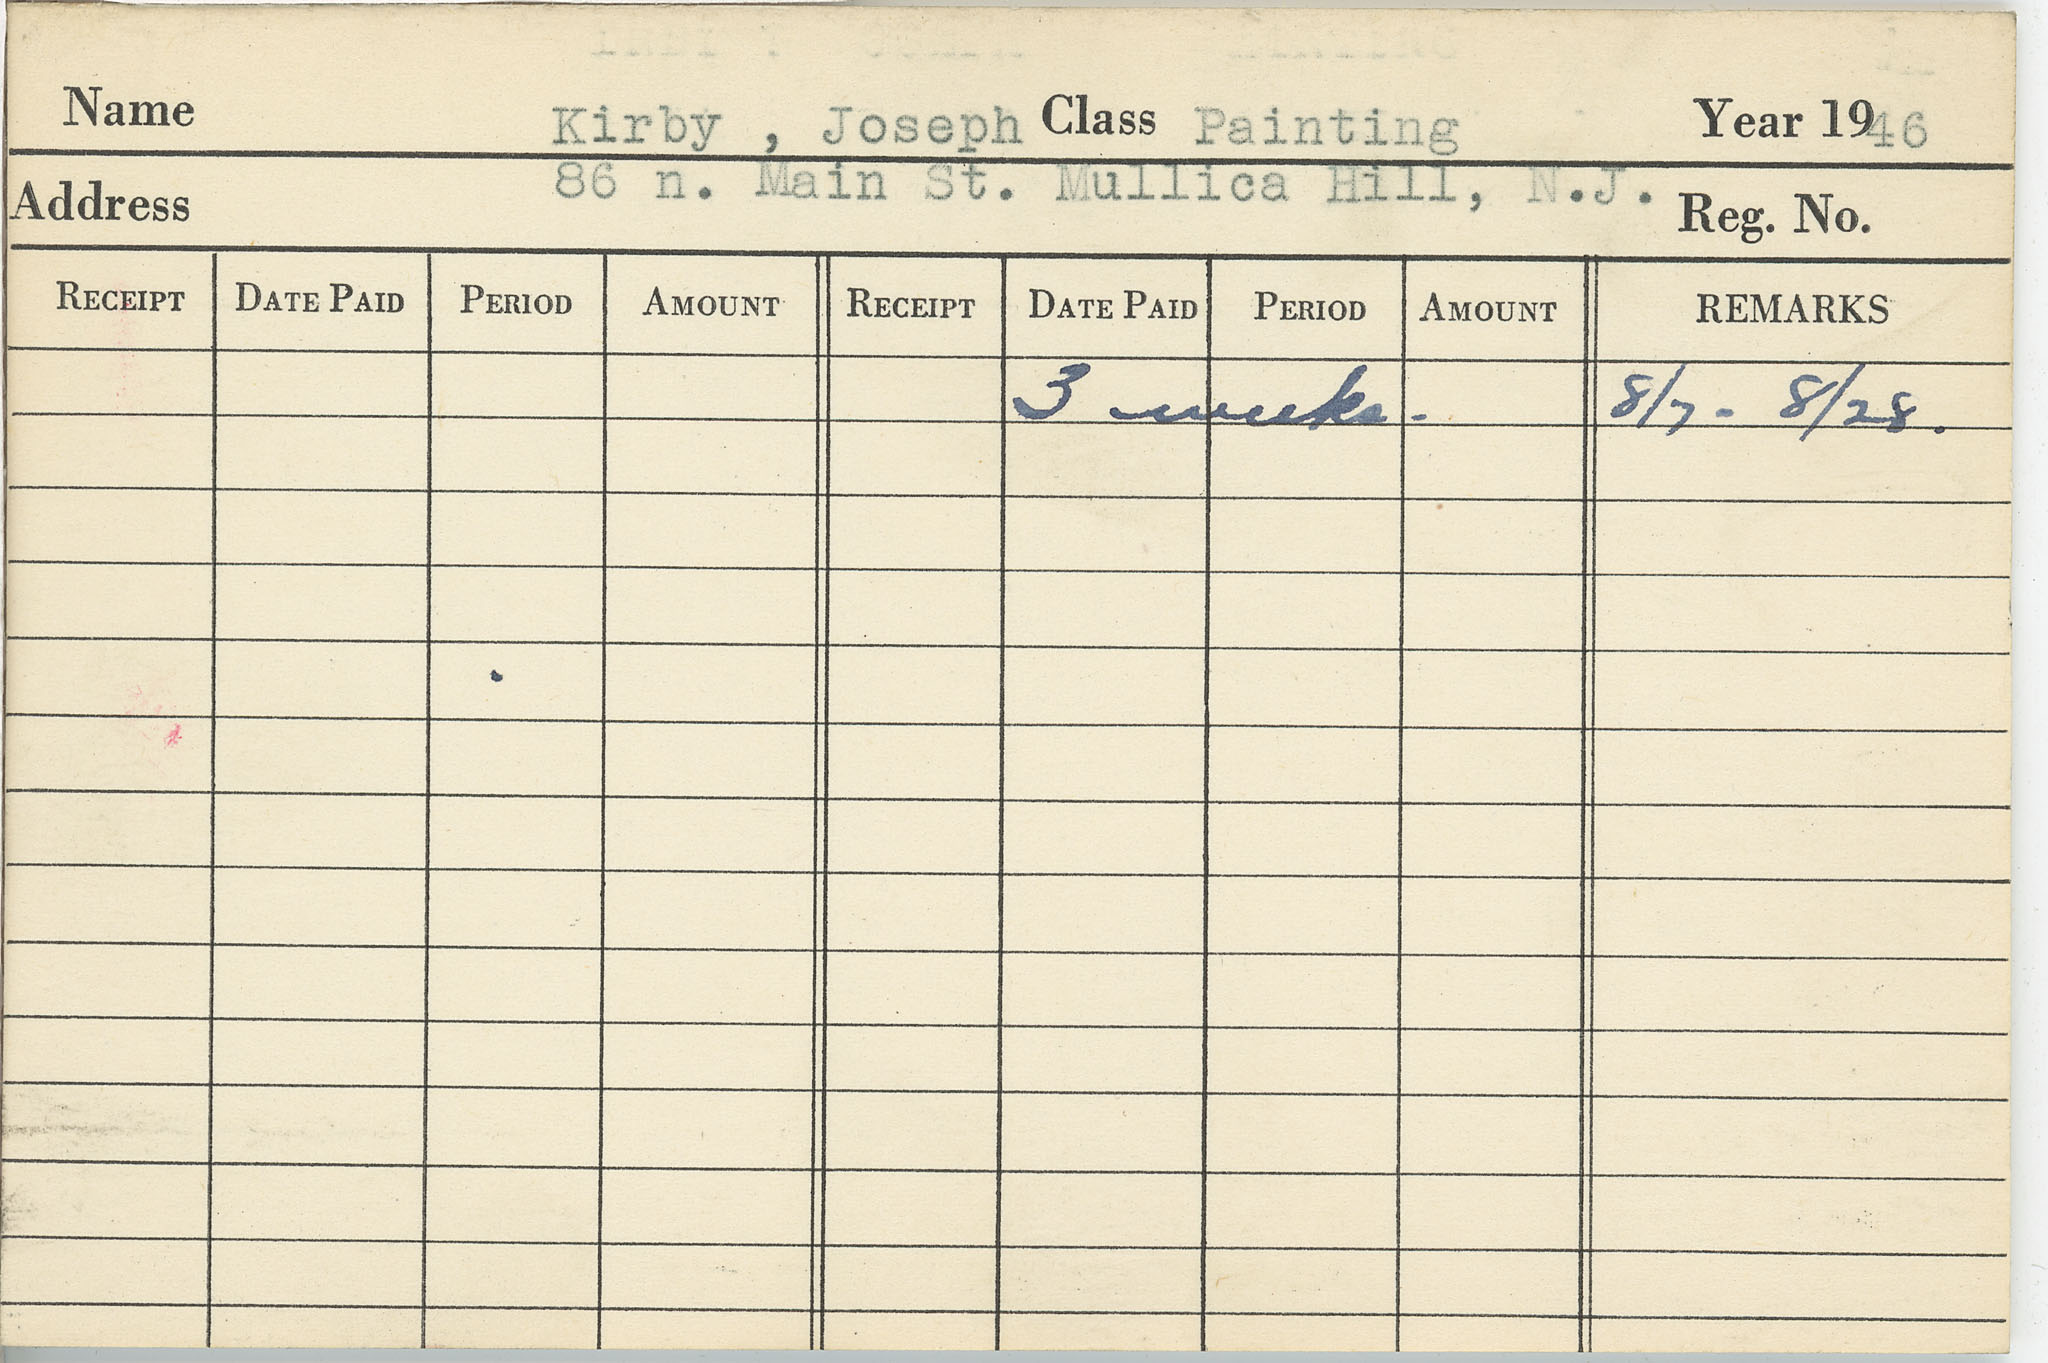 Name Kirby , Joseph Class Painting Year 1946
Address 86 n. Main St. Mullica Hill, N.J. Reg. No.
RECEIPT DATE PAID PERIOD AMOUNT RECEIPT DATE PAID PERIOD AMOUNT REMARKS
3 weeks. 8/7 - 8/28.